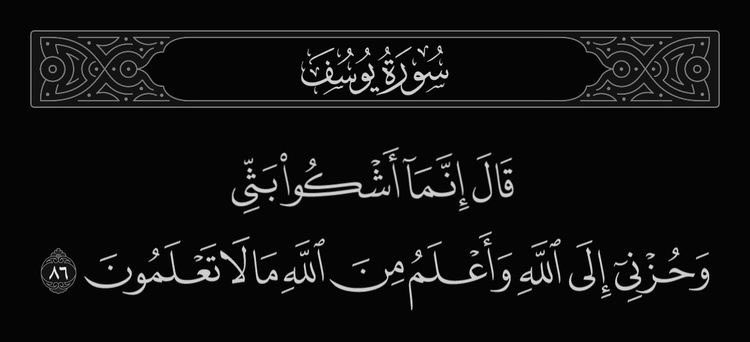 سُورَةُ يُوسُفَ
قَالَ إِنَّمَآ أَشْكُوا۟ بَثِّى
وَحُزْنِىٓ إِلَى ٱللَّهِ وَأَعْلَمُ مِنَ ٱللَّهِ مَا لَا تَعْلَمُونَ ٨٦